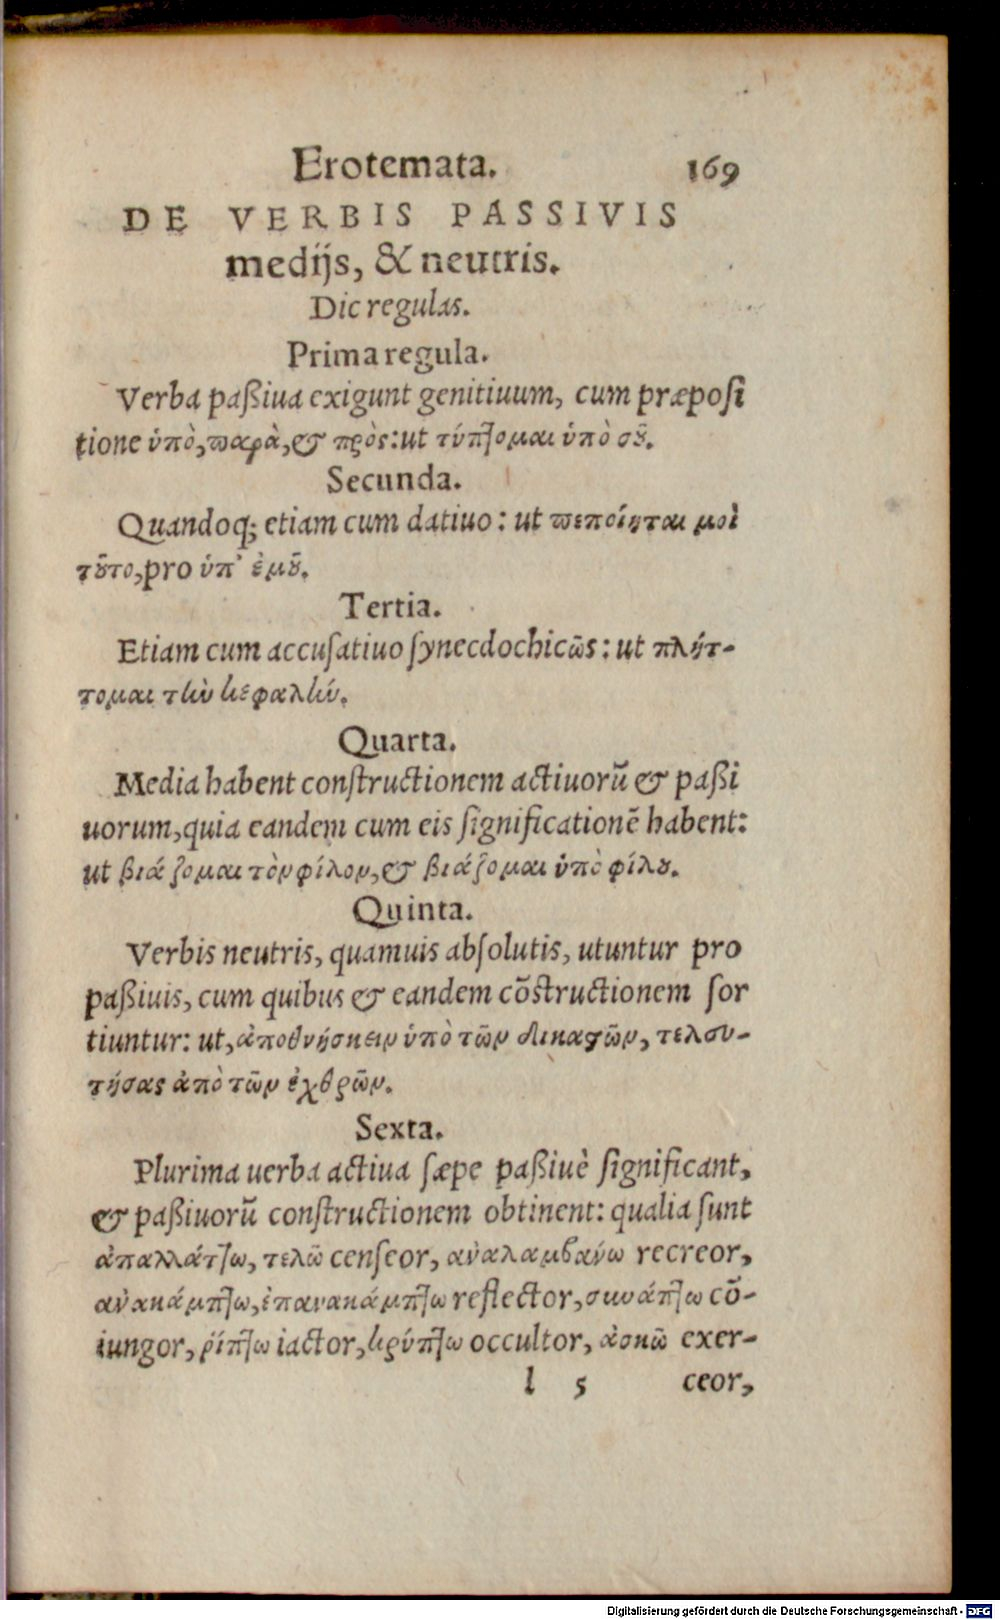 Erotemata. 169
DE VERBIS PASSIVIS
medijs, & neutris.
Dic regulas.
Prima regula.
Verba paßiua exigunt genitiuum, cum præposi
tione ὑπὸ, παρὰ, & πρὸς: ut τύπτομαι ὑπὸ σȣ͂.
Secunda.
Quandoq; etiam cum datiuo: ut πεποίηται μοὶ
τȣ͂το, pro ὑπ' ἐμȣ͂.
Tertia.
Etiam cum accuſatiuo ſynecdochicῶs: ut πλήτ-
τομαι τὴν κεφαλήν.
Quarta.
Media habent conſtructionem actiuorū & paßi
uorum, quia eandem cum eis ſignificationē habent:
ut βιάζομαι τὸν φίλον, & βιάζομαι ὑπὸ φίλȣ.
Quinta.
Verbis neutris, quamuis abſolutis, utuntur pro
paßiuis, cum quibus & eandem cōſtructionem ſor
tiuntur: ut, ἀποθνήσκειν ὑπὸ τῶν δικαϛῶν, τελευ-
τήσας ἀπὸ τῶν ἐχθρῶν.
Sexta.
Plurima uerba actiua ſæpe paßiuè ſignificant,
& paßiuorū conſtructionem obtinent: qualia ſunt
ἀπαλλάττω, τελῶ cenſeor, ἀναλαμβανω recreor,
ἀνακάμπτω, ἐπανακάμπτω reflector, συνάπτω cō-
iungor, ῥίπτω iactor, κρύπτω occultor, ἀσκῶ exer-
l 5 ceor,
Digitalisierung gefördert durch die Deutsche Forschungsgemeinschaft - DFG